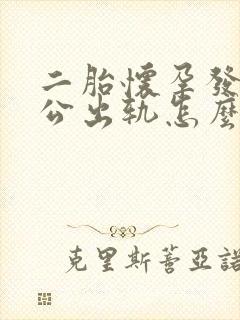 二胎懷孕發
公出軌怎麼
克里斯蒂亞諾